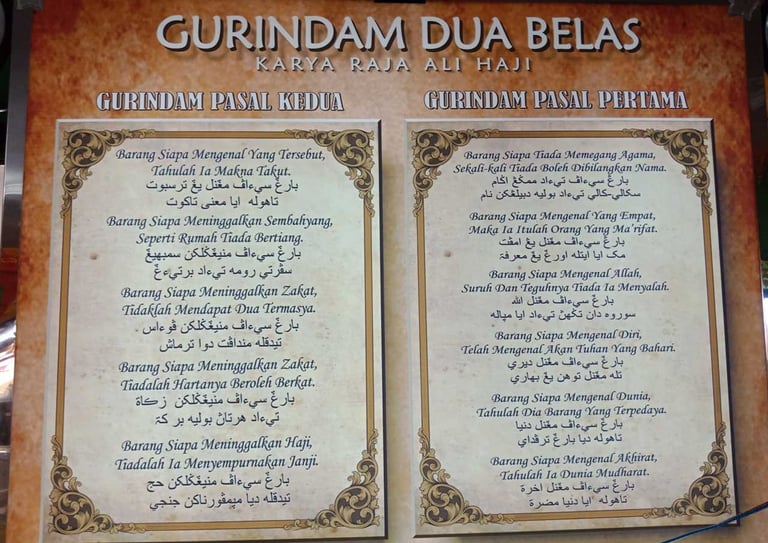 GURINDAM DUA BELAS
KARYA RAJA ALI HAJI
GURINDAM PASAL KEDUA
Barang Siapa Mengenal Yang Tersebut,
Tahulah Ia Makna Takut.
بارڠ سيءاڤ مڠنل يڠ ترسبوت
تاهوله ايا معنى تاكوت
Barang Siapa Meninggalkan Sembahyang,
Seperti Rumah Tiada Bertiang.
بارڠ سيءاڤ منيڠڬلكن سمبهيڠ
سڤرتي رومه تيءاد برتيءڠ
Barang Siapa Meninggalkan Zakat,
Tidaklah Mendapat Dua Termasya.
بارڠ سيءاڤ منيڠڬلكن ڤوءاس
تيدقله منداڤت دوا ترماش
Barang Siapa Meninggalkan Zakat,
Tiadalah Hartanya Beroleh Berkat.
بارڠ سيءاڤ منيڠڬلكن زكاة
تيءاد هرتاڽ بوليه بر كة
Barang Siapa Meninggalkan Haji,
Tiadalah Ia Menyempurnakan Janji.
بارڠ سيءاڤ منيڠڬلكن حج
تيدقله ديا مڽمڤورناكن جنجي
GURINDAM PASAL PERTAMA
Barang Siapa Tiada Memegang Agama,
Sekali-kali Tiada Boleh Dibilangkan Nama.
بارڠ سيءاڤ تيءاد ممڬڠ اڬام
سكالي-كالي تيءاد بوليه دبيلڠكن نام
Barang Siapa Mengenal Yang Empat,
Maka Ia Itulah Orang Yang Ma'rifat.
بارڠ سيءاڤ مڠنل يڠ امڤت
مك ايا ايتله اورڠ يڠ معرفة
Barang Siapa Mengenal Allah,
Suruh Dan Teguhnya Tiada Ia Menyalah.
بارڠ سيءاڤ مڠنل الله
سوروه دان تڬهڽ تيءاد ايا مڽاله
Barang Siapa Mengenal Diri,
Telah Mengenal Akan Tuhan Yang Bahari.
بارڠ سيءاڤ مڠنل ديري
تله مڠنل توهن يڠ بهاري
Barang Siapa Mengenal Dunia,
Tahulah Dia Barang Yang Terpedaya.
بارڠ سيءاڤ مڠنل دنيا
تاهوله ديا بارڠ ترڤداي
Barang Siapa Mengenal Akhirat,
Tahulah Ia Dunia Mudharat.
بارڠ سيءاڤ مڠنل اخرة
تاهوله ايا دنيا مضرة